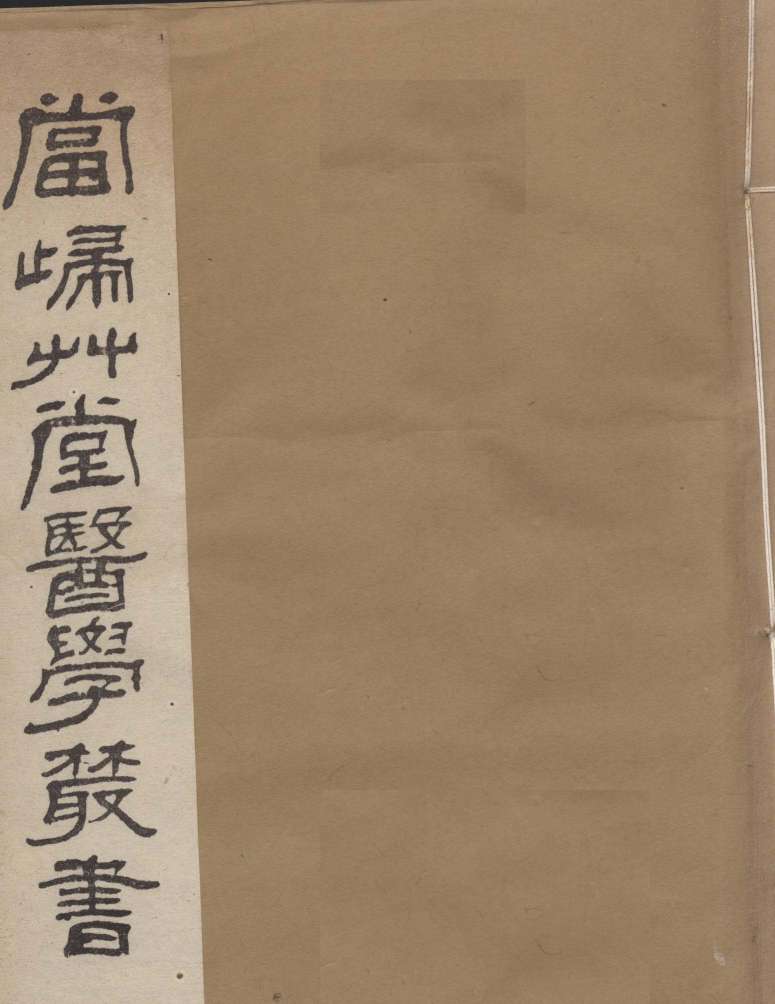 當歸艸堂醫學叢書